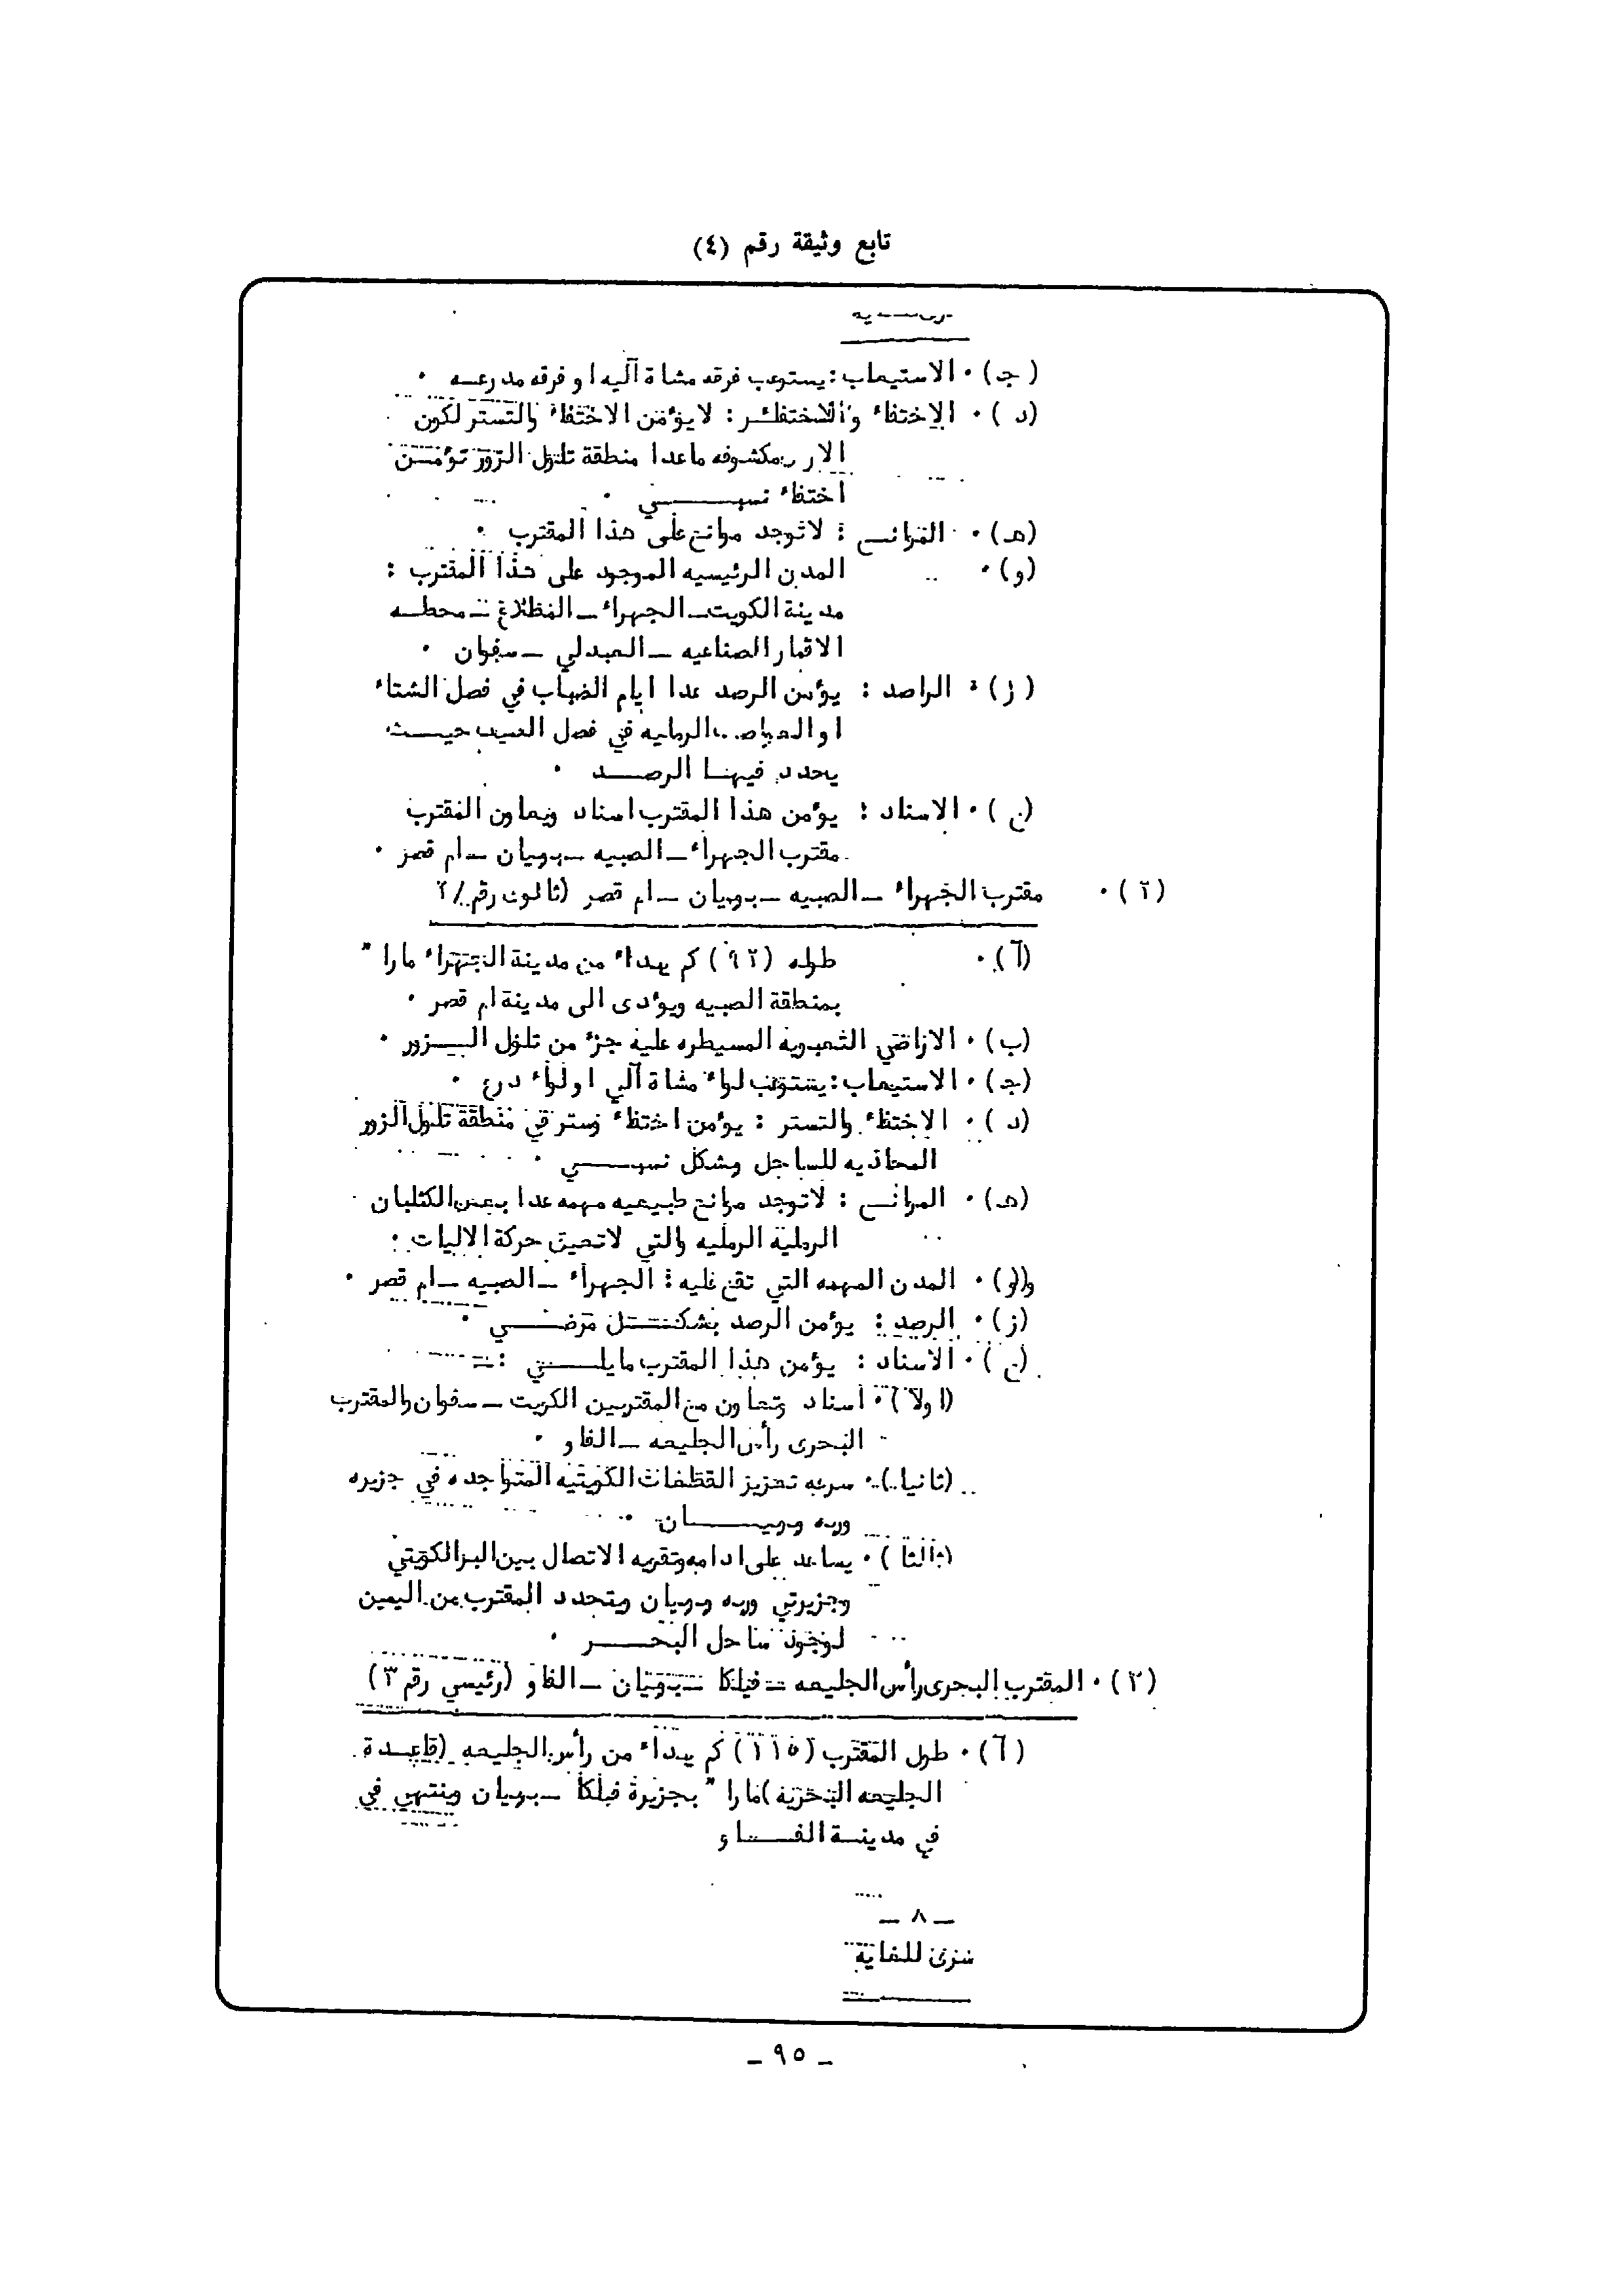 تابع وثيقة رقم (٤)
(جـ)٠ الاستيعاب : يستوعب فرقه مشاة آليه او فرقه مدرعـه ٠
(د)٠ الاختفاء : لا يؤمن الاختفاء والتستر لكون
مكشوفه ماعدا منطقة تلول الزور تؤمـن
اختفاء نسبـــــي ٠
(هـ)٠ : لا توجد موانع على هذا المقترب ٠
(و)٠ المدن الرئيسيه الموجود على هذا المقترب :
مدينة الكويت ـ الجهراء ـ المطلاع ـ محطـه
الاقمار الصناعيه ـ العبدلي ـ سفوان ٠
(ز)٠ الراصد : يؤمن الرصد عدا ايام الضباب في فصل الشتاء
او الرمليه في فصل الصيف حيـث
يحدد فيهـا الرصــد ٠
(ح)٠ الاسناد : يؤمن هذا المقترب اسناد ويعاون المقترب
مقترب الجهراء ـ الصبيه ـ بوبيان ـ ام قصر ٠
(٢)٠ مقترب الجهراء ـ الصبيه ـ بوبيان ـ ام قصر (ثانوي رقم /٢
(أ)٠ طوله (٩٢) كم يبداء من مدينة الجهراء مارا "
بمنطقة الصبيه ويؤدى الى مدينة ام قصر ٠
(ب)٠ الاراضي التعبويه المسيطره عليه جزء من تلول الـــزور ٠
(جـ)٠ الاستيعاب : يستوعب لواء مشاة آلي او لواء درع ٠
(د)٠ الاختفاء والتستر : يؤمن اختفاء وستر في منطقة تلول الزور
المحاذيه للساحل وبشكل نسبـــــي ٠
(هـ)٠ الموانـع : لا توجد موانع طبيعيه مهمه عدا بعض الكثبان
الرملية الرمليه والتي لاتعيق حركة الاليات ٠
(و)٠ المدن المهمه التي تقع عليه : الجهراء ـ الصبيه ـ ام قصر ٠
(ز)٠ الرصد : يؤمن الرصد بشكـــل مرضـــي ٠
(ح)٠ الاسناد : يؤمن هذا المقترب مايلـــــي :ـ
(اولا)٠ اسناد وتعاون مع المقتربين الكويت ـ سفوان والمقترب
البحرى رأس الجليعه ـ الفاو ٠
(ثانيا)٠ سرعه تعزيز القطعات الكويتيه المتواجده في جزيره
وربه وبوبيـــان ٠
(ثالثا)٠ يساعد على ادامه وتقويه الاتصال بين البر الكويتي
وجزيرتي وربه وبوبيان ويتحدد المقترب من اليمين
لوجود ساحل البحـــر ٠
(٣)٠ المقترب البحرى رأس الجليعه ـ فيلكا ـ بوبيان ـ الفاو (رئيسي رقم ٣)
(أ)٠ طول المقترب (١١٥) كم يبداء من رأس الجليعه (قاعـدة
الجليعه البحرية) مارا " بجزيرة فيلكا ـ بوبيان وينتهي في
في مدينـة الفـــاو
ـ ٨ ـ
سرى للغايه
ـ ٩٥ ـ